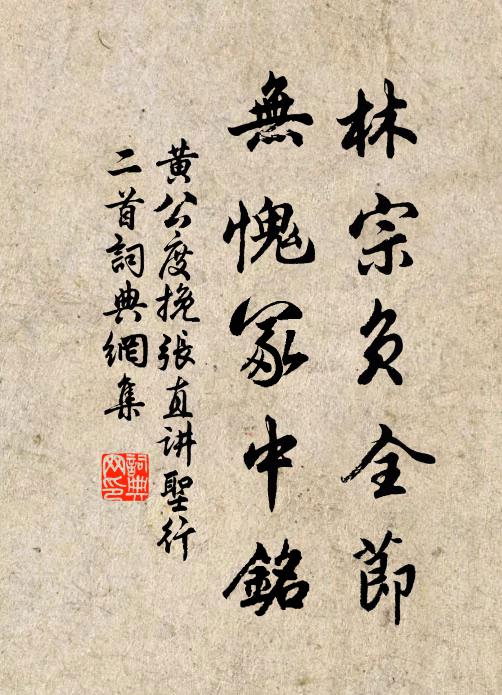 林宗負全節
無愧冢中銘
黄公度挽張直讲聖行
二首詞典網集
詞典網印